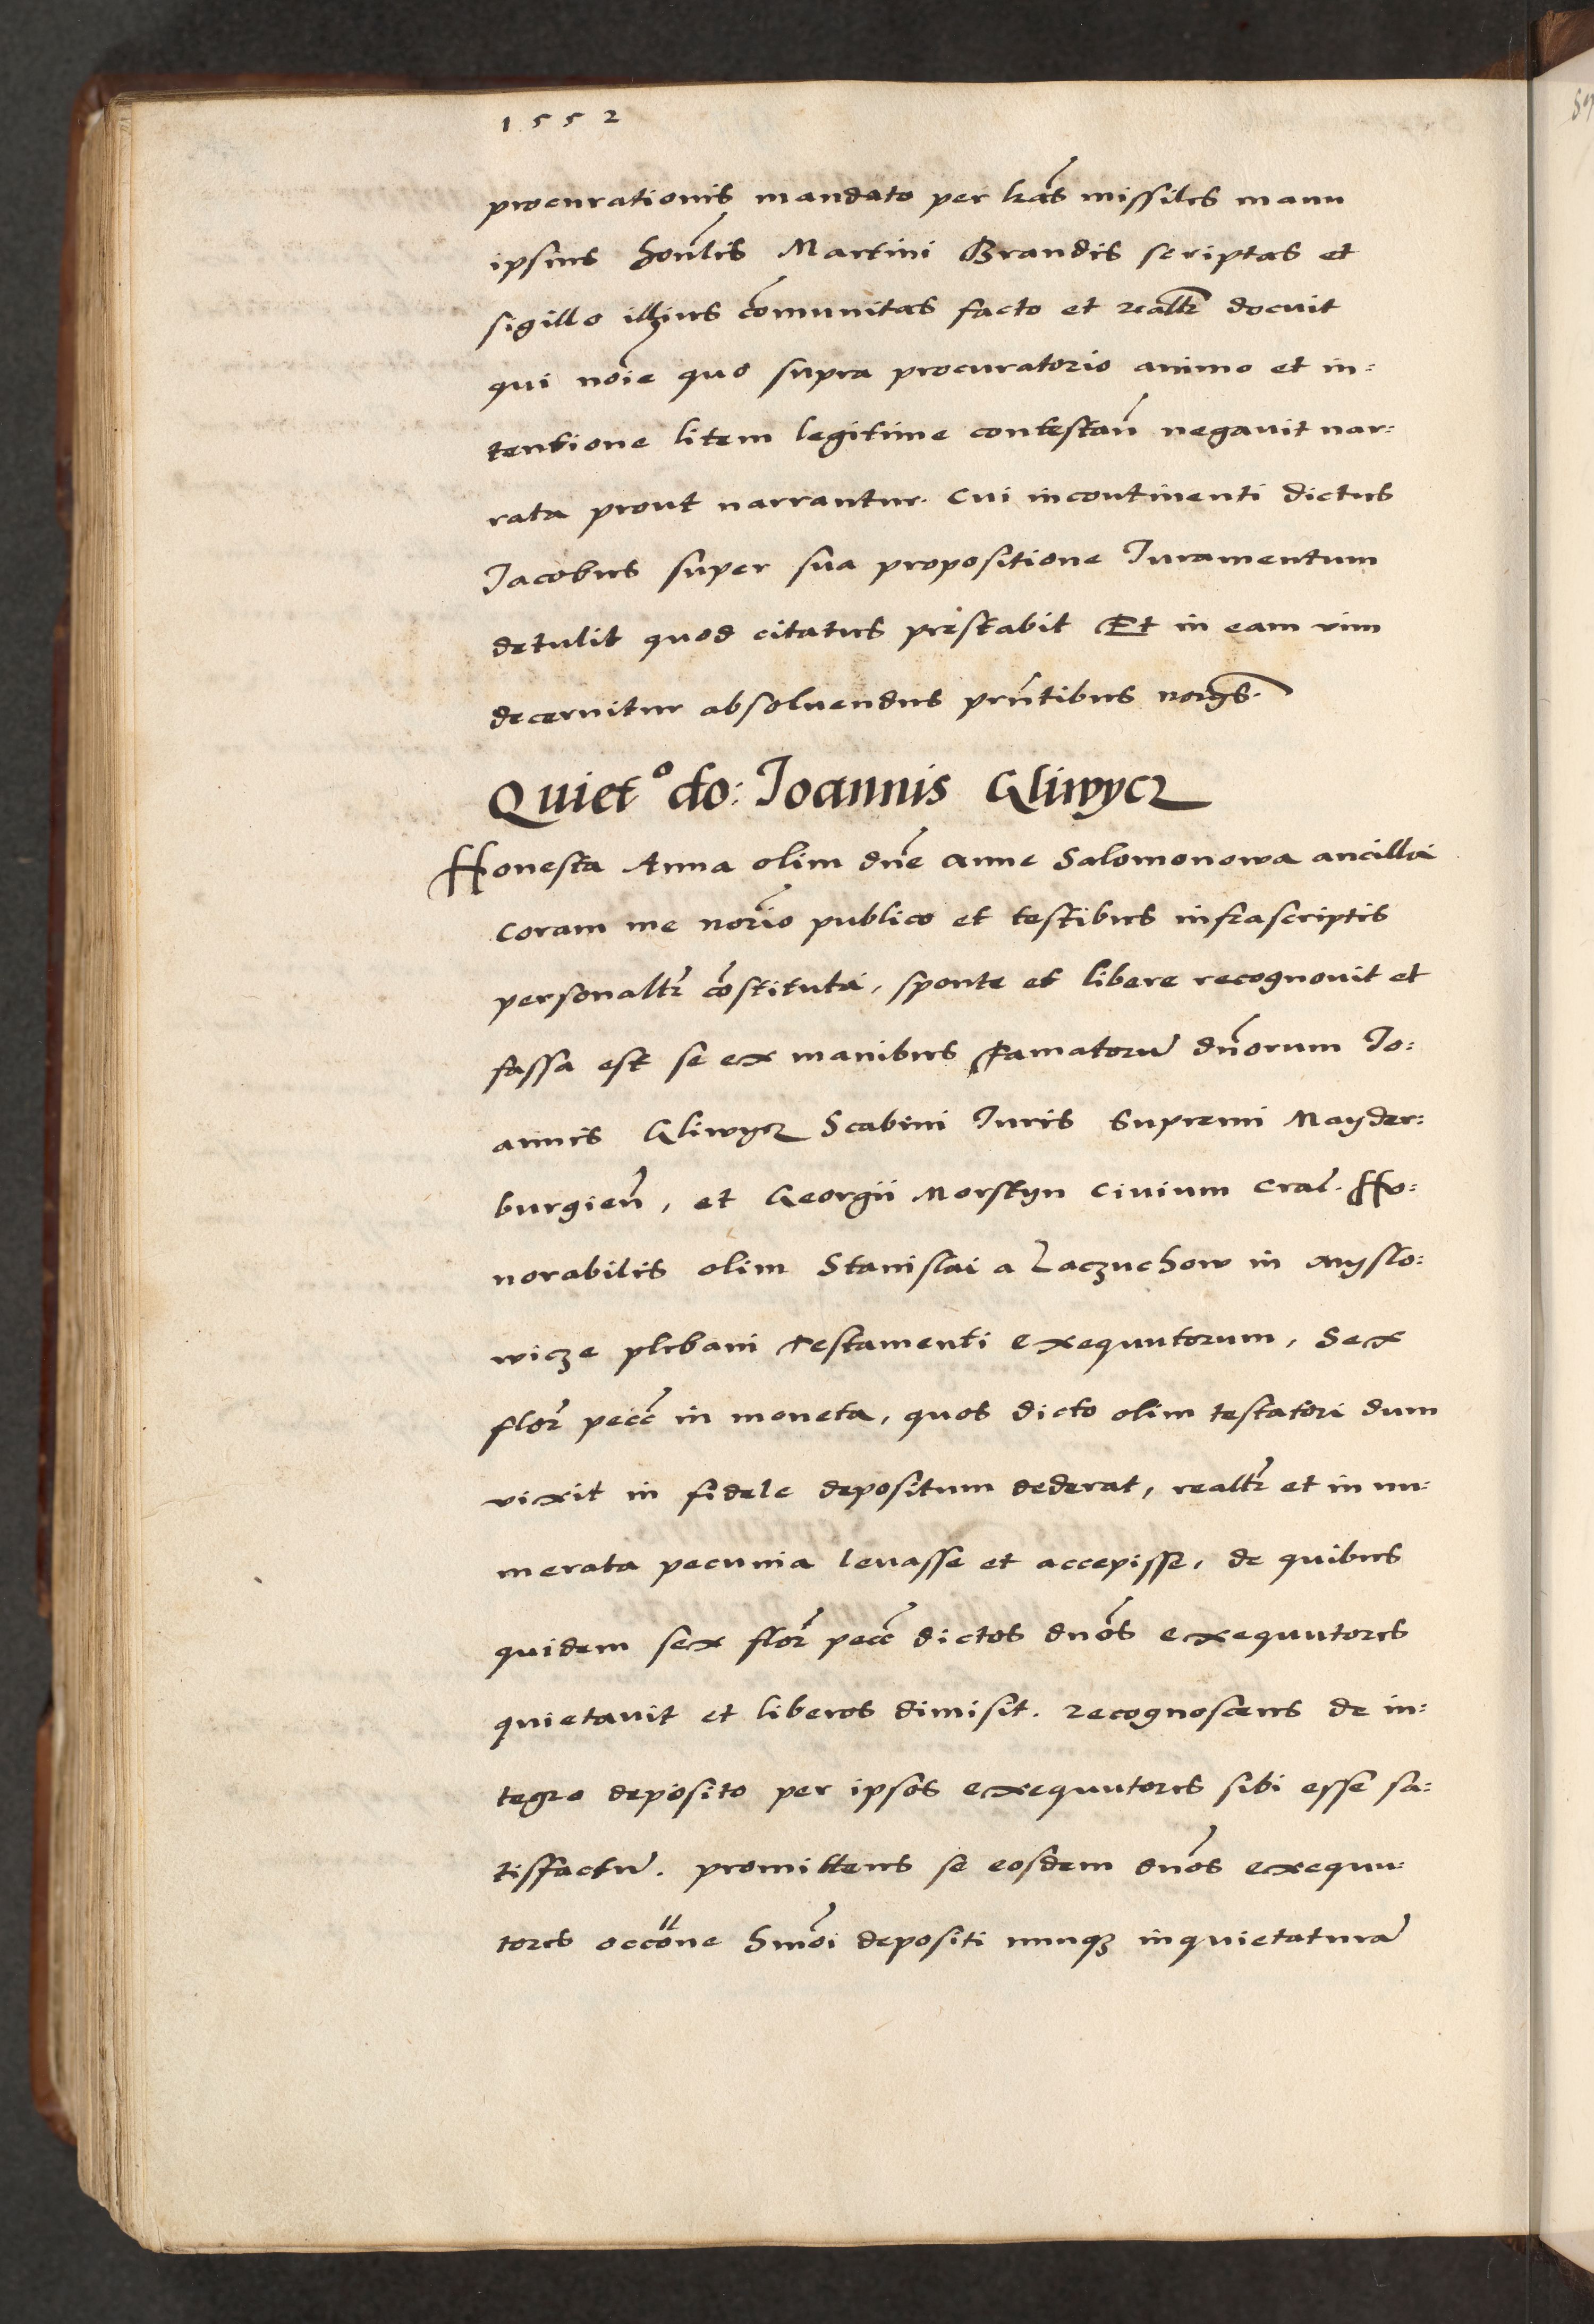 1552
procurationis mandato per lr̃as missiles manu
ipsius hon̄lis Martini Brandis scriptas et
sigillo illius com̄unitas facto et realr̃ docuit
qui noīe quo supra procuratorio animo et in=
tentione litem legitime contestan̄ negauit nar=
rata prout narrantur. Cui incontinenti dictus
Jacobus super sua propositione Juramentum
detulit quod citatus prestabit Et in eam vim
decernitur absoluendus prn̄tibus
Quiet° do: Joannis Gliwycz
Honesta Anna olim dn̄e Anne Salomonowa ancilla
coram me nor̄io publico et testibus infrascriptis
personalr̃ cōstituta, sponte et libere recognouit et
fassa est se ex manibus Famatorū dn̄orum Jo=
annis Gliwycz Scabini Juris Supremi Mayder=
burgien̄, et Georgii Morstyn Civium Crac̄. Ho=
norabilis olim Stanislai a Laczuchow in Myslo=
wicze plebani Testamenti exequutorum, Sex
flor̄ pecc̄ in moneta, quos dicto olim testatori dum
vixit in fidele depositum dederat, realr̃ et in nu=
merata pecunia leuasse et accepisse, de quibus
quidem sex flor̄ pecc̄ dictos dn̄os exequutores
quietauit et liberos dimisit. recognoscens de in=
tegro deposito per ipsos exequutores sibi esse sa=
tisfactū. promittens se eosdem dn̄os exequu=
tores occōne hmōi depositi nunqꝫ inquietaturā